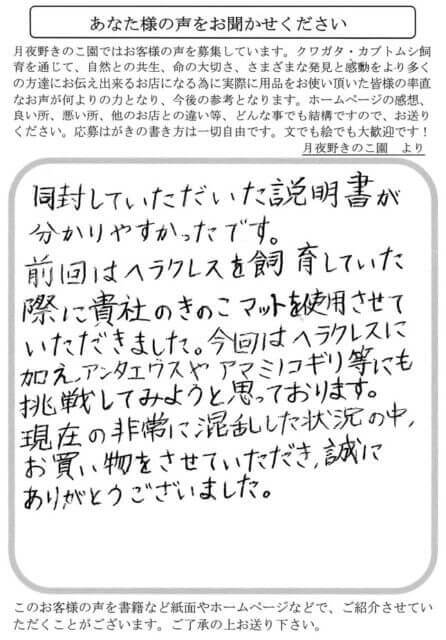 あなた様の声をお聞かせください
月夜野きのこ園ではお客様の声を募集しています。クワガタ・カブトムシ飼
育を通じて、自然との共生、命の大切さ、さまざまな発見と感動をより多く
の方達にお伝え出来るお店になる為に実際に用品をお使い頂いた皆様の率直
なお声が何よりの力となり、今後の参考となります。ホームページの感想、
良い所、悪い所、他のお店との違い等、どんな事でも結構ですので、お送り
ください。応募はがきの書き方は一切自由です。文でも絵でも大歓迎です！
月夜野きのこ園　より
同封していただいた説明書が
分かりやすかったです。
前回はヘラクレスを飼育していた
際に貴社のきのこマットを使用させて
いただきました。今回はヘラクレスに
加え,アンタエウスやアマミノコギリ等にも
挑戦してみようと思っております。
現在の非常に混乱した状況の中,
お買い物をさせていただき,誠に
ありがとうございました。
このお客様の声を書籍など紙面やホームページなどで、ご紹介させてい
ただくことがございます。ご了承の上お送り下さい。